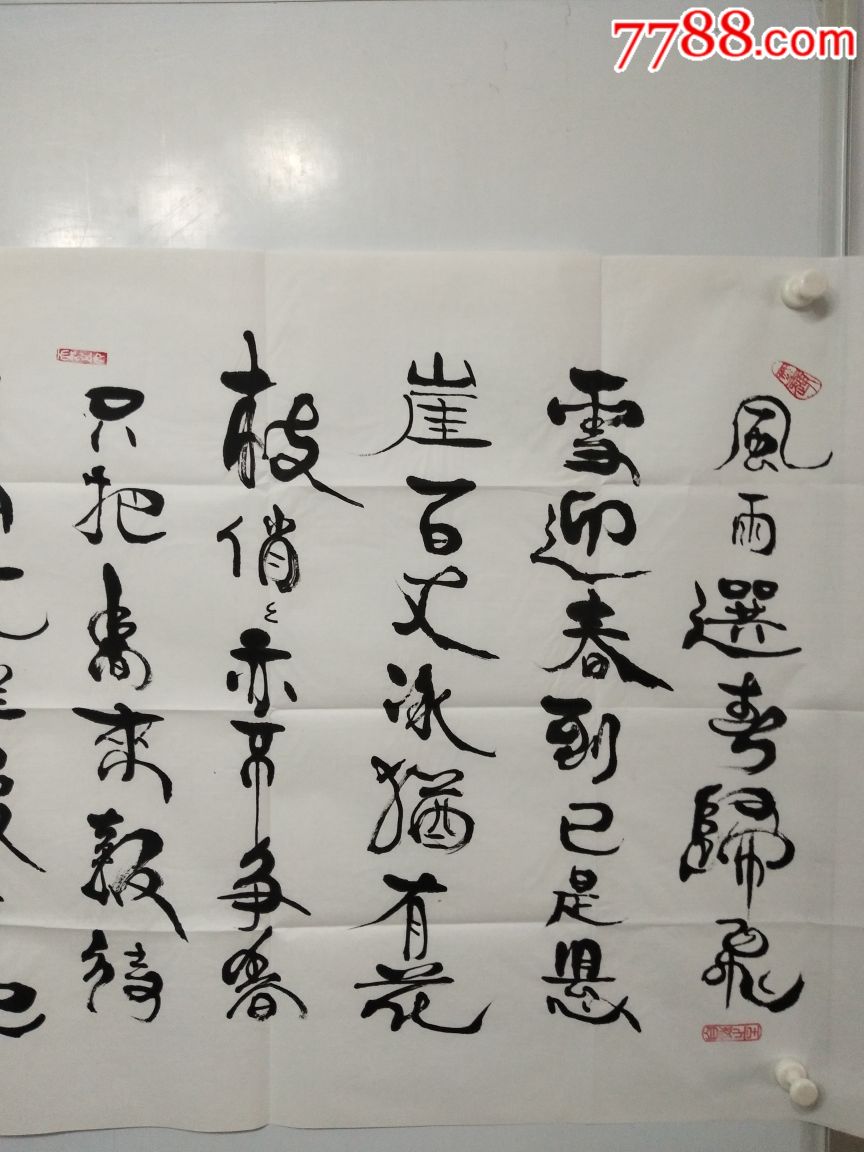 7788.com
風雨選春歸飛
雪迎春到已是悬
崖百丈冰猶有花
枝俏〻亦不争春
只把春來報待